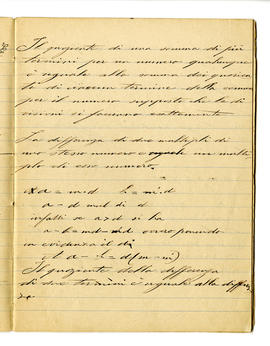 Il quoziente di una somma di più
termini per un numero qualunque
è uguale alla somma dei quozien
ti di ciascun termine della somma
per il numero supposto che le di
visioni si facciano esattamente.
La differenza di due multipli di
uno stesso numero è uguale un multi
plo di esso numero.
a = md b = m'd
a - d
infatti se a > d si ha
a - b = md - m'd ovvero ponendo
in evidenza il d
a - b = d(m - m')
Il quoziente della differenza
di due termini è uguale alla differ